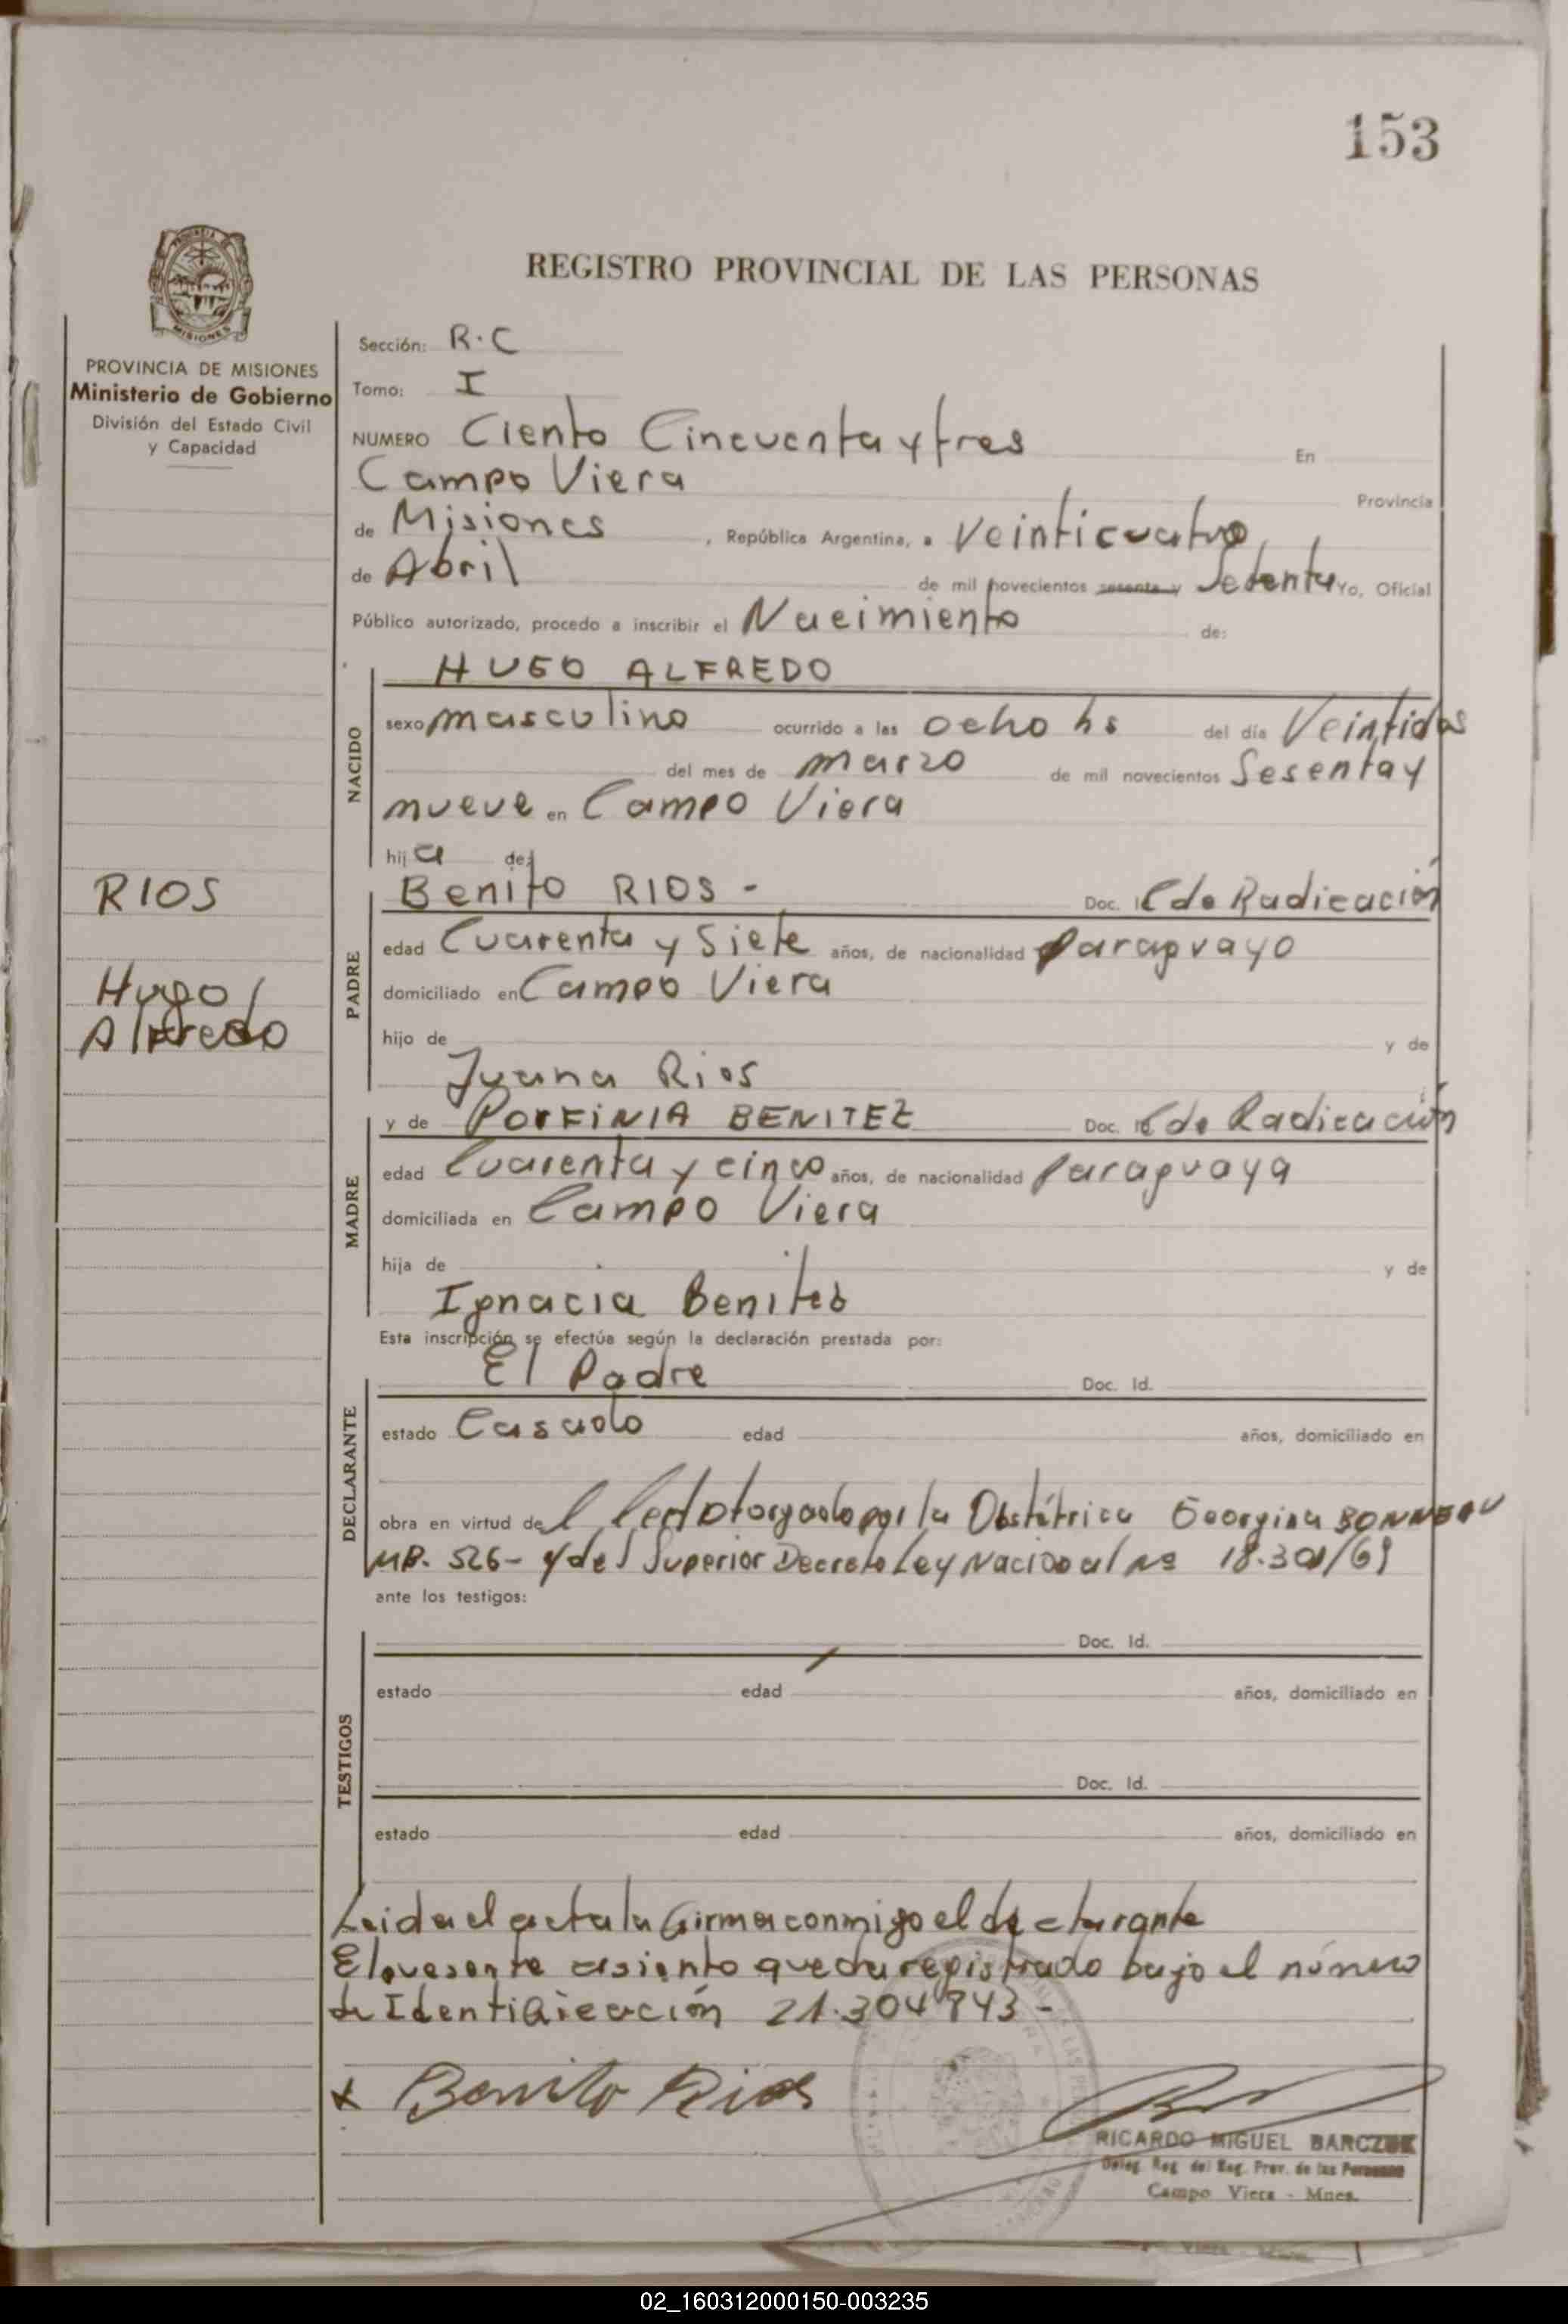 153
REGISTRO PROVINCIAL DE LAS PERSONAS
PROVINCIA DE MISIONES
Ministerio de Gobierno
División del Estado Civil
y Capacidad
RIOS
Hugo
Alfredo
Sección: R.C
Tomo: I
NUMERO Ciento Cincuenta y tres En
Campo Viera Provincia
de Misiones, República Argentina, a Veinticuatro
de Abril de mil novecientos sesenta y Setenta Yo, Oficial
Público autorizado, procedo a inscribir el Nacimiento de:
NACIDO
HUGO ALFREDO
sexo masculino ocurrido a las ocho hs del día Veintidos
del mes de marzo de mil novecientos Sesenta y
nueve en Campo Viera
hija de
PADRE
Benito RIOS - Doc. C de Radicación
edad Cuarenta y Siete años, de nacionalidad paraguayo
domiciliado en Campo Viera
hijo de y de
Juana Rios
MADRE
y de PORFINIA BENITEZ Doc. C de Radicación
edad Cuarenta y cinco años, de nacionalidad paraguaya
domiciliada en Campo Viera
hija de y de
Ignacia Benites
Esta inscripción se efectúa según la declaración prestada por:
DECLARANTE
El Padre Doc. Id.
estado Casado edad años, domiciliado en
obra en virtud del Cert Otorgado por la Obstétrica Georgina BONNEAU
MP. 526- y del Superior Decreto Ley Nacional Nº 18.301/69
ante los testigos:
TESTIGOS
Doc. Id.
estado edad años, domiciliado en
Doc. Id.
estado edad años, domiciliado en
Leida el acta la firma conmigo el declarante
El presente asiento queda registrado bajo el número
de Identificación 21.304943-
x Benito Rios
RICARDO MIGUEL BARCZUK
Deleg. Reg. del Reg. Prov. de las Personas
Campo Viera - Mnes.
02_160312000150-003235